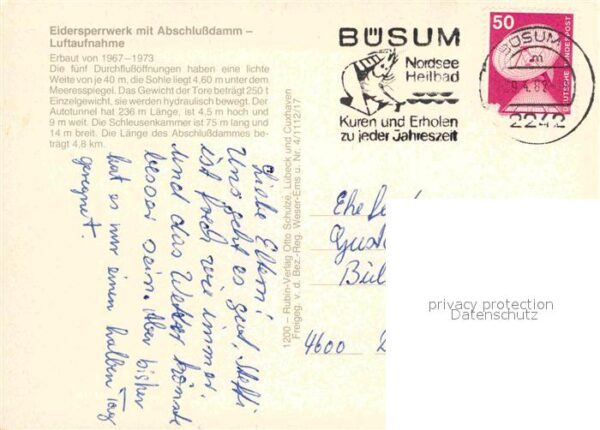 Eidersperrwerk mit Abschlußdamm –
Luftaufnahme
Erbaut von 1967–1973
Die fünf Durchflußöffnungen haben eine lichte
Weite von je 40 m, die Sohle liegt 4,60 m unter dem
Meeresspiegel. Das Gewicht der Tore beträgt 250 t
Einzelgewicht, sie werden hydraulisch bewegt. Der
Autotunnel hat 236 m Länge, ist 4,5 m hoch und
9 m weit. Die Schleusenkammer ist 75 m lang und
14 m breit. Die Länge des Abschlußdammes be-
trägt 4,8 km.
Liebe Eltern!
Uns geht es gut, Steffi
ist frech wie immer,
und das Wetter könnte
besser sein. Aber bisher
hat es nur einen halben Tag
geregnet.
1200 – Rubin-Verlag Otto Schulze, Lübeck und Cuxhaven
Freigeg. v. d. Bez.-Reg. Weser-Ems u. Nr. 4/1112/17
BÜSUM
Nordsee
Heilbad
Kuren und Erholen
zu jeder Jahreszeit
50
DEUTSCHE BUNDESPOST
BÜSUM
m
2242
4600
privacy protection
Datenschutz